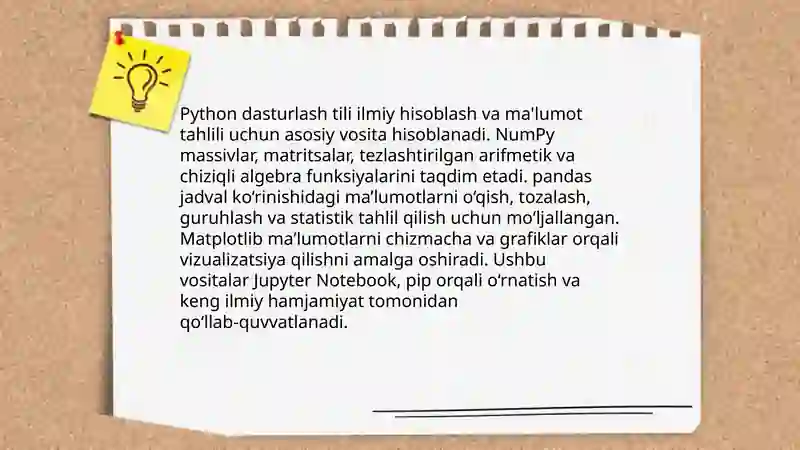 Python dasturlash tili ilmiy hisoblash va ma'lumot
tahlili uchun asosiy vosita hisoblanadi. NumPy
massivlar, matritsalar, tezlashtirilgan arifmetik va
chiziqli algebra funksiyalarini taqdim etadi. pandas
jadval koʻrinishidagi maʼlumotlarni oʻqish, tozalash,
guruhlash va statistik tahlil qilish uchun moʻljallangan.
Matplotlib maʼlumotlarni chizmacha va grafiklar orqali
vizualizatsiya qilishni amalga oshiradi. Ushbu
vositalar Jupyter Notebook, pip orqali oʻrnatish va
keng ilmiy hamjamiyat tomonidan
qoʻllab-quvvatlanadi.